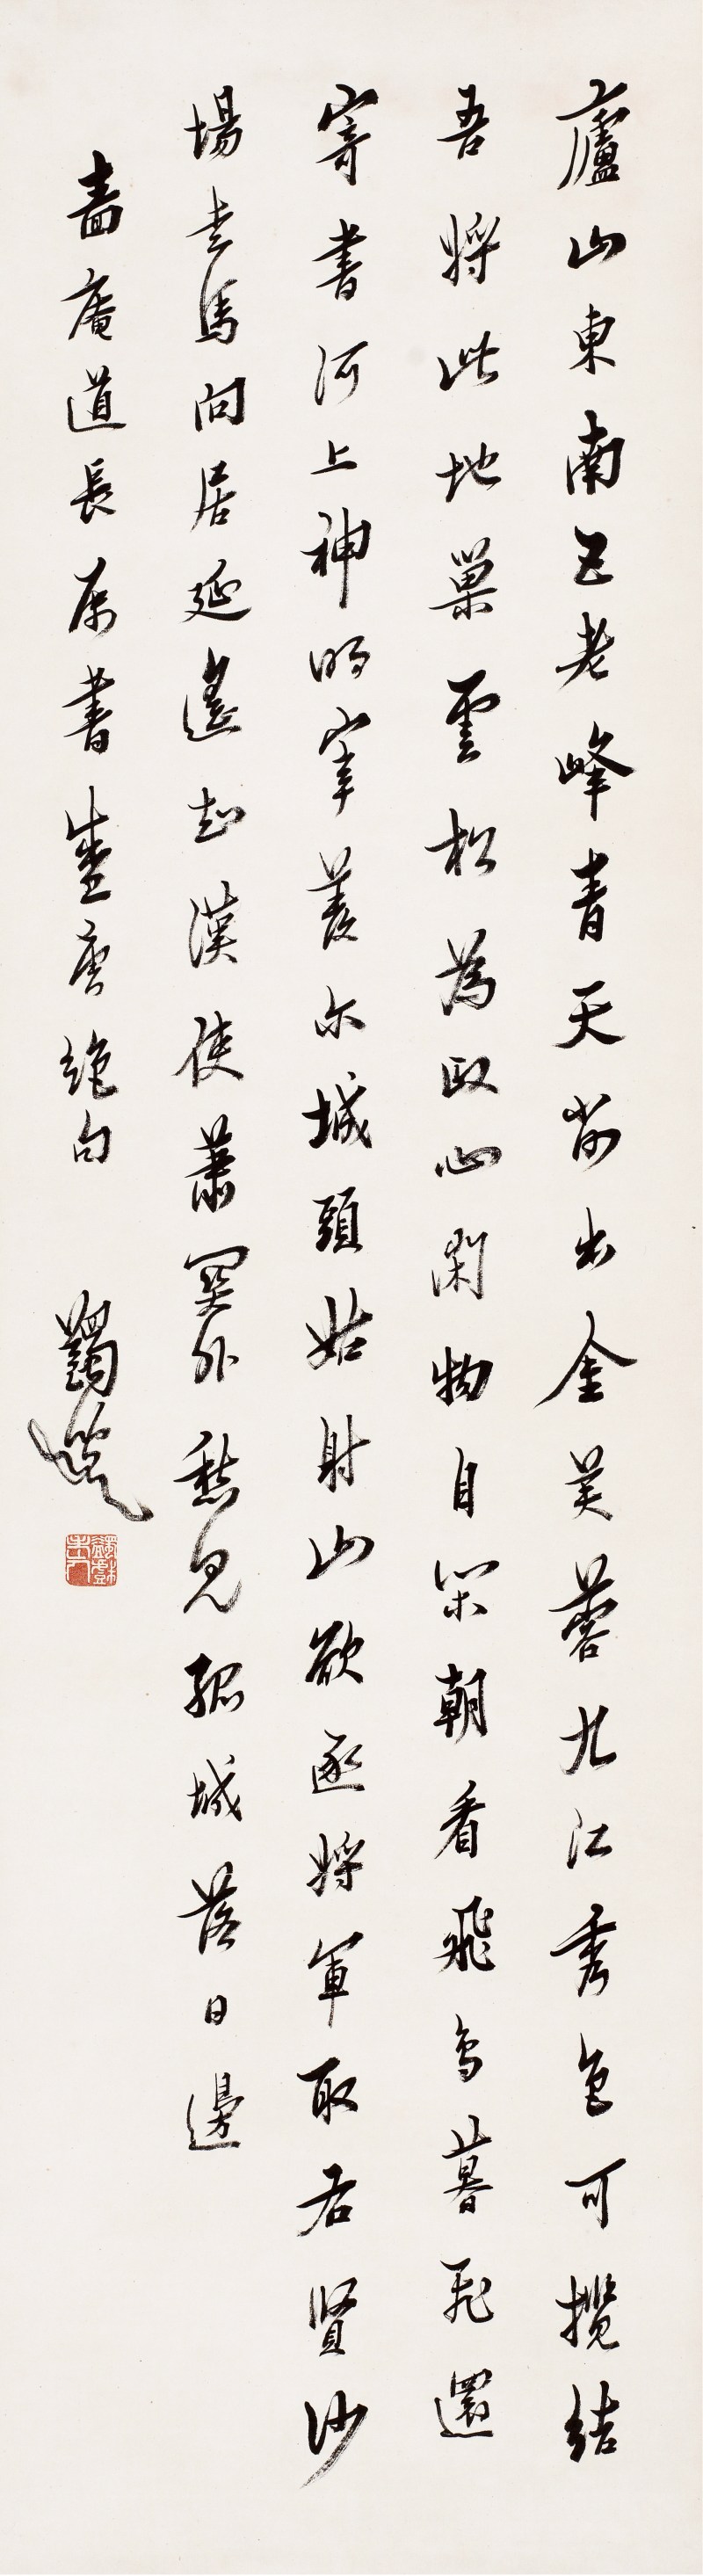 廬山東南五老峰青天削出金芙蓉九江秀色可攬結
吾將此地巢雲松為政心閑物自閑朝看飛鳥暮飛還
寄書河上神明宰羨尔城頭姑射山欲逐將軍取右賢沙
場走馬向居延遙知漢使蕭關外愁見孤城落日邊
嗇庵道長属書盛唐絕句 蠲叟
蠲戲老人